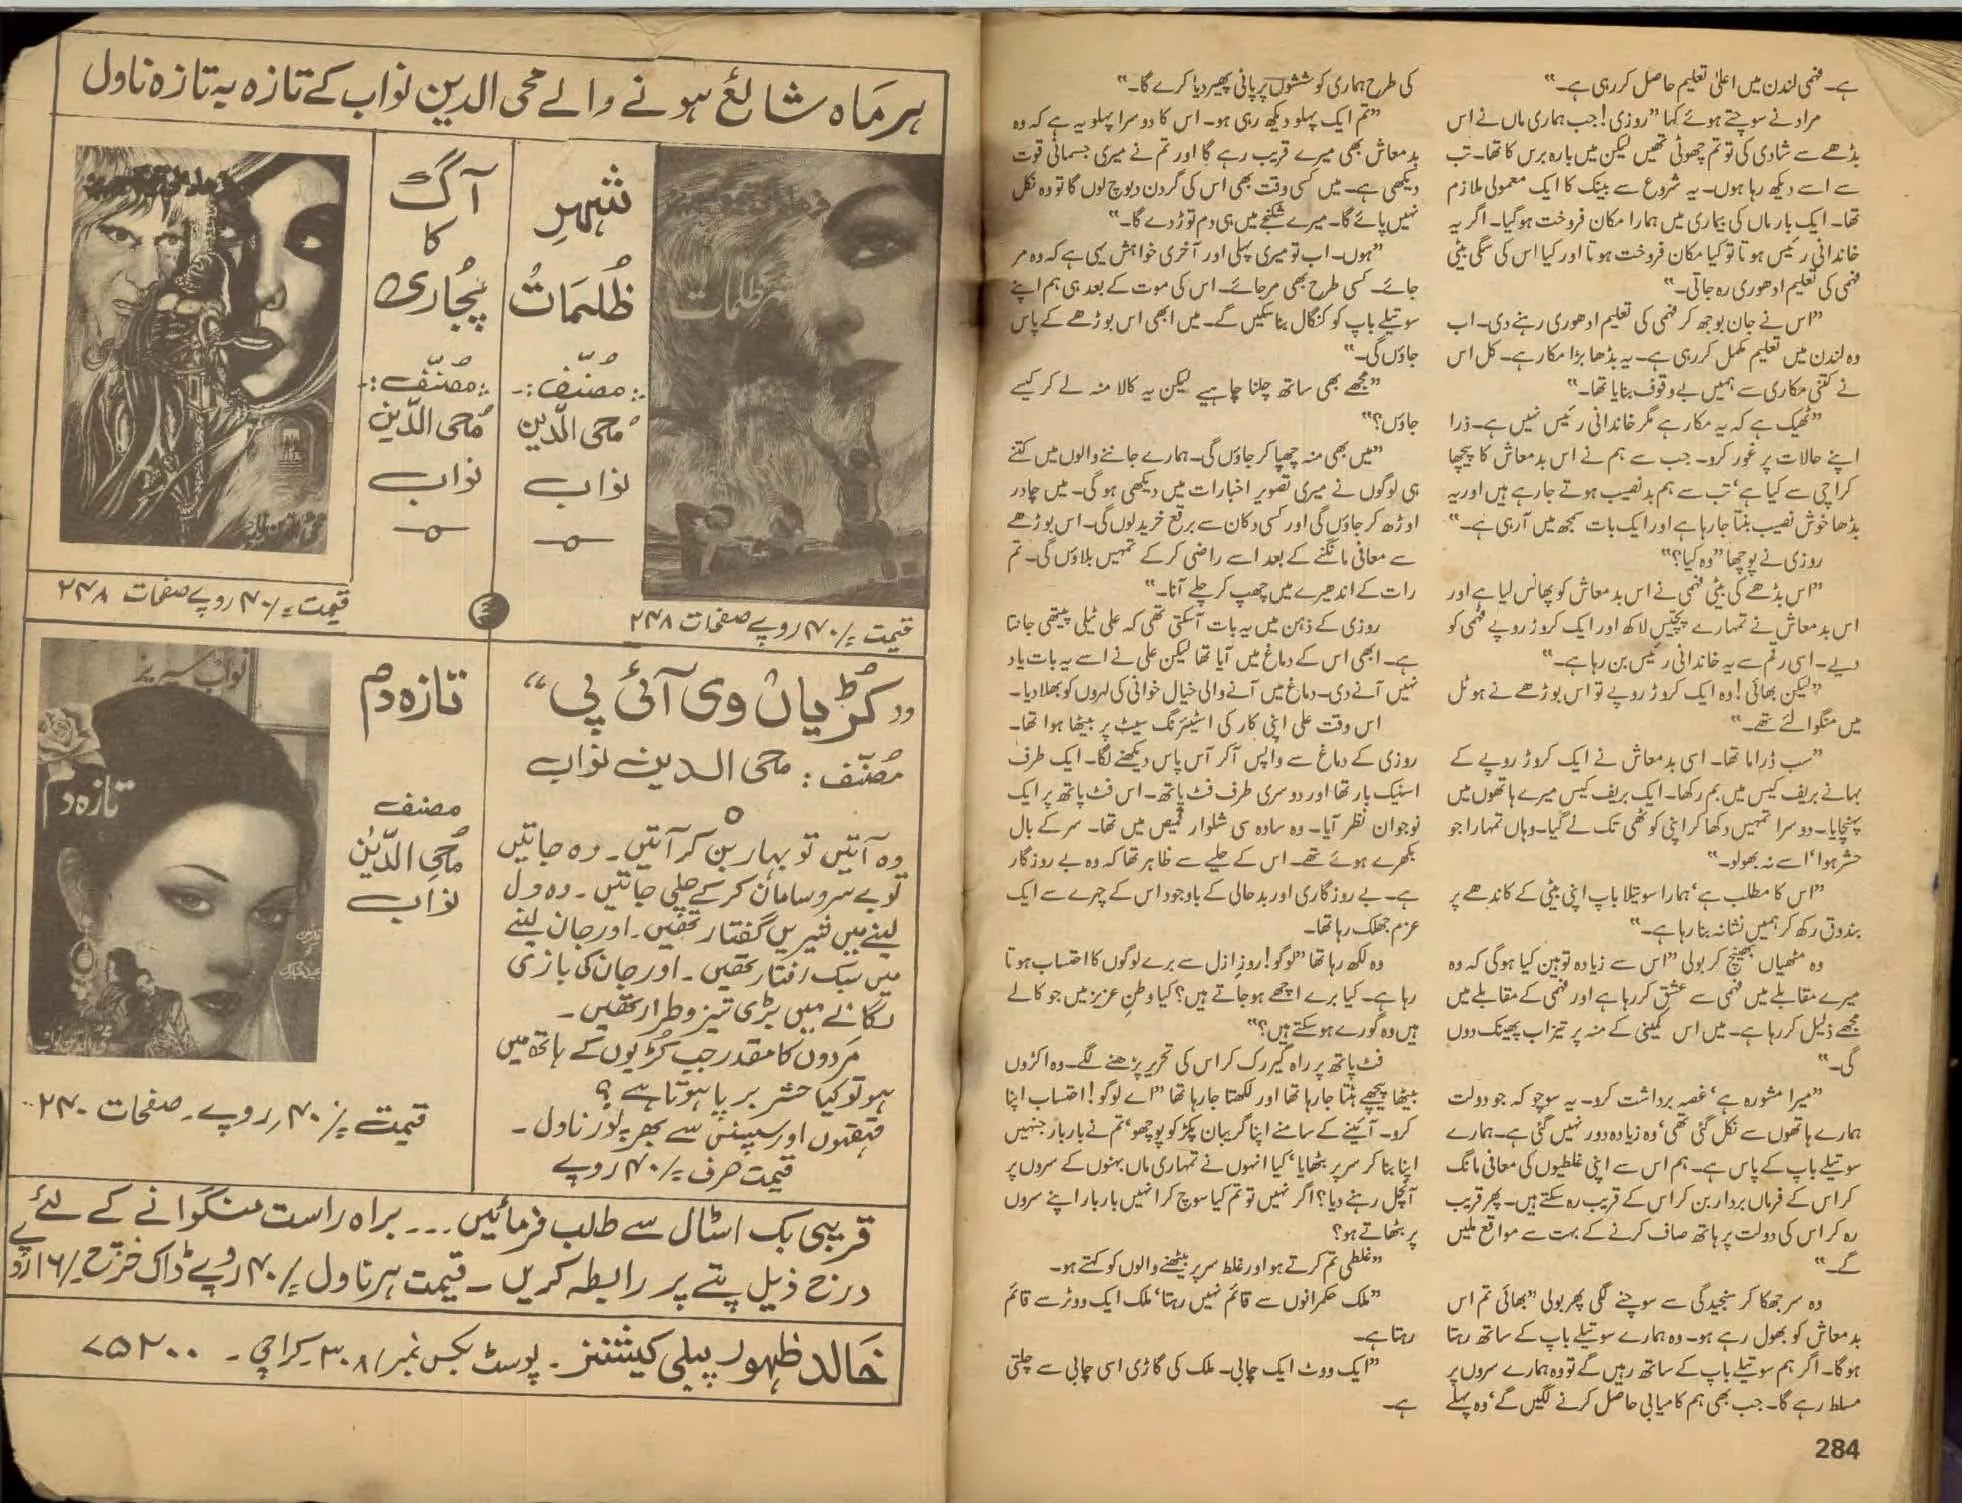 ہے۔ فہمی لندن میں اعلیٰ تعلیم حاصل کر رہی ہے۔"
مراد نے سوچتے ہوئے کہا "روزی! جب ہماری ماں نے اس
بڈھے سے شادی کی تو تم چھوٹی تھیں لیکن میں بارہ برس کا تھا۔ تب
سے اسے دیکھ رہا ہوں۔ یہ شروع سے بینک کا ایک معمولی ملازم
تھا۔ ایک بار ماں کی بیماری میں ہمارا مکان فروخت ہو گیا۔ اگر یہ
خاندانی رئیس ہوتا تو کیا مکان فروخت ہوتا اور کیا اس کی سگی بیٹی
فہمی کی تعلیم ادھوری رہ جاتی۔"
"اس نے جان بوجھ کر فہمی کی تعلیم ادھوری رہنے دی۔ اب
وہ لندن میں تعلیم مکمل کر رہی ہے۔ یہ بڈھا بڑا مکار ہے۔ کل اس
نے کتنی مکاری سے ہمیں بے وقوف بنایا تھا۔"
"ٹھیک ہے کہ یہ مکار ہے مگر خاندانی رئیس نہیں ہے۔ ذرا
اپنے حالات پر غور کرو۔ جب سے ہم نے اس بدمعاش کا پیچھا
کراچی سے کیا ہے' تب سے ہم بدنصیب ہوتے جا رہے ہیں اور یہ
بڈھا خوش نصیب بنتا جا رہا ہے اور ایک بات سمجھ میں آ رہی ہے۔"
روزی نے پوچھا "وہ کیا؟"
"اس بڈھے کی بیٹی فہمی نے اس بدمعاش کو پھانس لیا ہے اور
اس بدمعاش نے تمہارے پچیس لاکھ اور ایک کروڑ روپے فہمی کو
دیے۔ اسی رقم سے یہ خاندانی رئیس بن رہا ہے۔"
"لیکن بھائی! وہ ایک کروڑ روپے تو اس بوڑھے نے ہوٹل
میں منگوائے تھے۔"
"سب ڈراما تھا۔ اسی بدمعاش نے ایک کروڑ روپے کے
بہانے بریف کیس میں بم رکھا۔ ایک بریف کیس میرے ہاتھوں میں
پہنچایا۔ دوسرا تمہیں دکھا کر اپنی کوٹھی تک لے گیا۔ وہاں تمہارا جو
حشر ہوا' اسے نہ بھولو۔"
"اس کا مطلب ہے' ہمارا سوتیلا باپ اپنی بیٹی کے کاندھے پر
بندوق رکھ کر ہمیں نشانہ بنا رہا ہے۔"
وہ مٹھیاں بھینچ کر بولی "اس سے زیادہ توہین کیا ہو گی کہ وہ
میرے مقابلے میں فہمی سے عشق کر رہا ہے اور فہمی کے مقابلے میں
مجھے ذلیل کر رہا ہے۔ میں اس کمینی کے منہ پر تیزاب پھینک دوں
گی۔"
"میرا مشورہ ہے' غصہ برداشت کرو۔ یہ سوچو کہ جو دولت
ہمارے ہاتھوں سے نکل گئی تھی' وہ زیادہ دور نہیں گئی ہے۔ ہمارے
سوتیلے باپ کے پاس ہے۔ ہم اس سے اپنی غلطیوں کی معافی مانگ
کر اس کے فرماں بردار بن کر اس کے قریب رہ سکتے ہیں۔ پھر قریب
رہ کر اس کی دولت پر ہاتھ صاف کرنے کے بہت سے مواقع ملیں
گے۔"
وہ سر جھکا کر سنجیدگی سے سوچنے لگی پھر بولی "بھائی تم اس
بدمعاش کو بھول رہے ہو۔ وہ ہمارے سوتیلے باپ کے ساتھ رہتا
ہو گا۔ اگر ہم سوتیلے باپ کے ساتھ رہیں گے تو وہ ہمارے سروں پر
مسلط رہے گا۔ جب بھی ہم کامیابی حاصل کرنے لگیں گے' وہ پہلے
کی طرح ہماری کوششوں پر پانی پھیر دیا کرے گا۔"
"تم ایک پہلو دیکھ رہی ہو۔ اس کا دوسرا پہلو یہ ہے کہ وہ
بدمعاش بھی میرے قریب رہے گا اور تم نے میری جسمانی قوت
دیکھی ہے۔ میں کسی وقت بھی اس کی گردن دبوچ لوں گا تو وہ نکل
نہیں پائے گا۔ میرے شکنجے میں ہی دم توڑ دے گا۔"
"ہوں۔ اب تو میری پہلی اور آخری خواہش یہی ہے کہ وہ مر
جائے۔ کسی طرح بھی مر جائے۔ اس کی موت کے بعد ہی ہم اپنے
سوتیلے باپ کو کنگال بنا سکیں گے۔ میں ابھی اس بوڑھے کے پاس
جاؤں گی۔"
"مجھے بھی ساتھ چلنا چاہیے لیکن یہ کالا منہ لے کر کیسے
جاؤں؟"
"میں بھی منہ چھپا کر جاؤں گی۔ ہمارے جاننے والوں میں کتنے
ہی لوگوں نے میری تصویر اخبارات میں دیکھی ہو گی۔ میں چادر
اوڑھ کر جاؤں گی اور کسی دکان سے برقع خرید لوں گی۔ اس بوڑھے
سے معافی مانگنے کے بعد اسے راضی کر کے تمہیں بلاؤں گی۔ تم
رات کے اندھیرے میں چھپ کر چلے آنا۔"
روزی کے ذہن میں یہ بات آ سکتی تھی کہ علی ٹیلی پیتھی جانتا
ہے۔ ابھی اس کے دماغ میں آیا تھا لیکن علی نے اسے یہ بات یاد
نہیں آنے دی۔ دماغ میں آنے والی خیال خوانی کی لہروں کو بھلا دیا۔
اس وقت علی اپنی کار کی اسٹیئرنگ سیٹ پر بیٹھا ہوا تھا۔
روزی کے دماغ سے واپس آ کر آس پاس دیکھنے لگا۔ ایک طرف
اسنیک بار تھا اور دوسری طرف فٹ پاتھ۔ اس فٹ پاتھ پر ایک
نوجوان نظر آیا۔ وہ سادہ سی شلوار قمیص میں تھا۔ سر کے بال
بکھرے ہوئے تھے۔ اس کے حلیے سے ظاہر تھا کہ وہ بے روزگار
ہے۔ بے روزگاری اور بدحالی کے باوجود اس کے چہرے سے ایک
عزم جھلک رہا تھا۔
وہ لکھ رہا تھا "لوگو! روزِ ازل سے برے لوگوں کا احتساب ہوتا
رہا ہے۔ کیا برے اچھے ہو جاتے ہیں؟ کیا وطنِ عزیز میں جو کالے
ہیں وہ گورے ہو سکتے ہیں؟"
فٹ پاتھ پر راہ گیر رک کر اس کی تحریر پڑھنے لگے۔ وہ اکڑوں
بیٹھا پیچھے ہٹتا جا رہا تھا اور لکھتا جا رہا تھا "اے لوگو! احتساب اپنا
کرو۔ آئینے کے سامنے اپنا گریبان پکڑ کو پوچھو' تم نے بار بار جنہیں
اپنا بنا کر سر پر بٹھایا' کیا انہوں نے تمہاری ماں بہنوں کے سروں پر
آنچل رہنے دیا؟ اگر نہیں تو تم کیا سوچ کر انہیں بار بار اپنے سروں
پر بٹھاتے ہو؟
"غلطی تم کرتے ہو اور غلط سر پر بیٹھنے والوں کو کہتے ہو۔
"ملک حکمرانوں سے قائم نہیں رہتا' ملک ایک ووٹر سے قائم
رہتا ہے۔
"ایک ووٹ ایک چابی۔ ملک کی گاڑی اسی چابی سے چلتی
ہے۔
284
ہر ماہ شائع ہونے والے محی الدین نواب کے تازہ بہ تازہ ناول
شہرِ
ظلمات
مصنّف:۔
محی الدّین
نواب
شہر ظلمات
قیمت =/۴۰ روپے صفحات ۲۴۸
آگ
کا
پجاری
مصنّف:۔
محی الدّین
نواب
قیمت =/۴۰ روپے صفحات ۲۴۸
"کڑیاں وی آئی پی"
مصنّف: محی الدین نواب
وہ آتیں تو بہار بن کر آتیں۔ وہ جاتیں
تو بے سروسامان کر کے چلی جاتیں۔ وہ دل
لینے میں شیریں گفتار تھیں۔ اور جان لینے
میں سبک رفتار تھیں۔ اور جان کی بازی
لگانے میں بڑی تیز و طرار تھیں۔
مردوں کا مقدر جب کڑیوں کے ہاتھ میں
ہو تو کیا حشر برپا ہوتا ہے؟
قہقہوں اور سسپنس سے بھرپور ناول۔
قیمت صرف =/۴۰ روپے
تازہ دم
مصنف
محی الدّین
نواب
نواب سیریز
تازہ دم
محی الدین نواب
قیمت =/۴۰ روپے۔ صفحات ۲۴۰
قریبی بک اسٹال سے طلب فرمائیں... براہ راست منگوانے کے لئے
درج ذیل پتے پر رابطہ کریں۔ قیمت ہر ناول =/۴۰ روپے ڈاک خرچ =/۱۶ روپے
خالد ظہور پبلی کیشنز۔ پوسٹ بکس نمبر ۳۰۸۱ کراچی۔ ۷۵۲۰۰